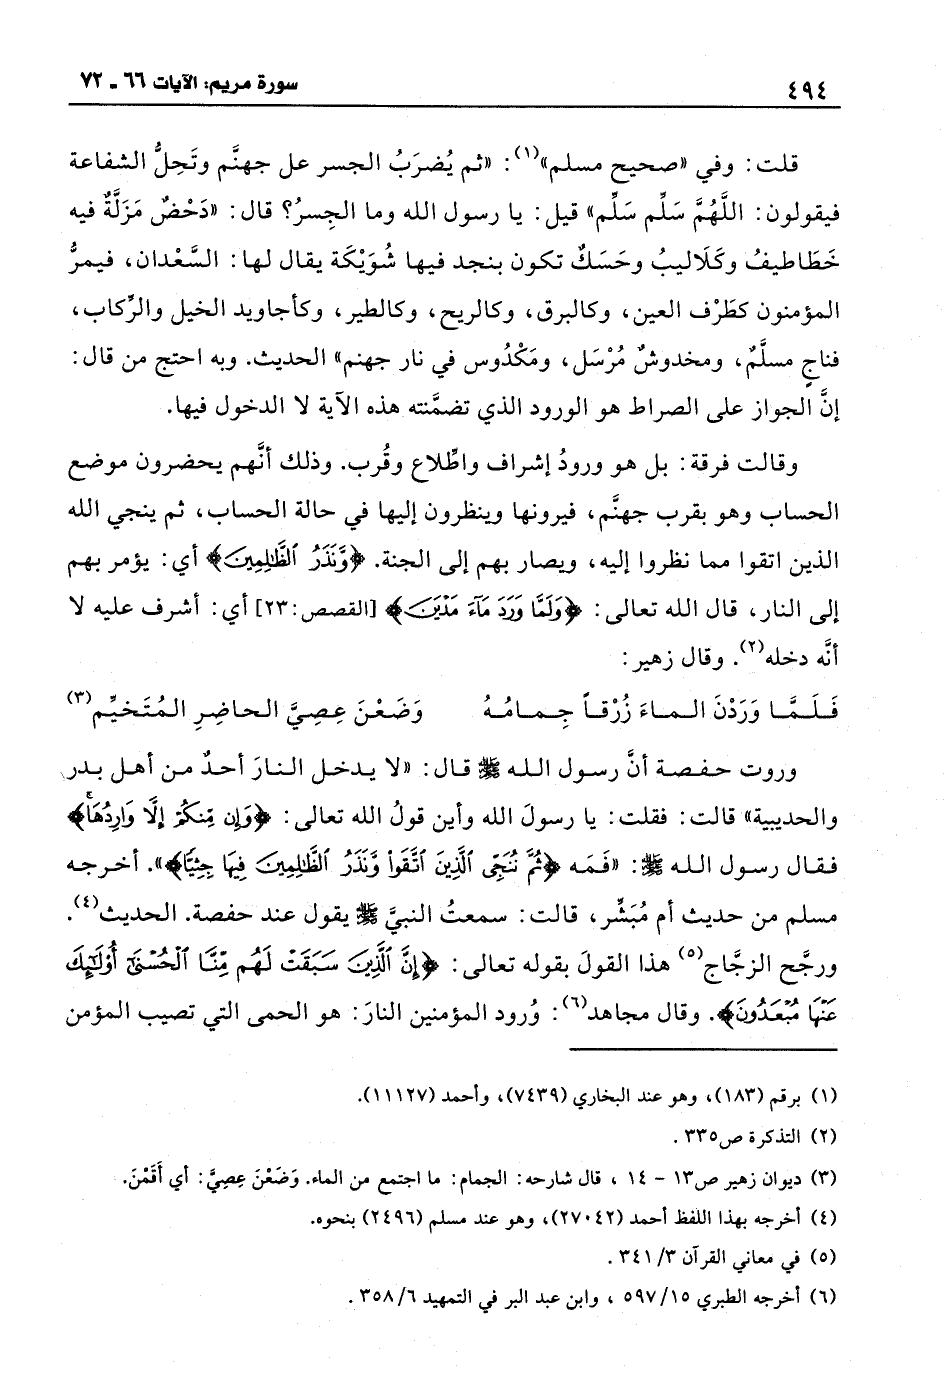 ٤٩٤
سورة مريم: الآيات ٦٦ ـ ٧٢
قلت: وفي «صحيح مسلم»(١): «ثم يُضرَبُ الجسر عل جهنَّم وتَحِلُّ الشفاعة
فيقولون: اللَّهُمَّ سَلِّم سَلِّم» قيل: يا رسول الله وما الجِسرُ؟ قال: «دَحْضٌ مَزَلَّةٌ فيه
خَطَاطيفُ وكَلَاليبُ وحَسَكٌ تكون بنجد فيها شُوَيْكَة يقال لها: السَّعْدان، فيمرُّ
المؤمنون كطَرْف العين، وكالبرق، وكالريح، وكالطير، وكأجاويد الخيل والرِّكاب،
فناجٍ مسلَّمٌ، ومخدوشٌ مُرْسَل، ومَكْدُوس في نار جهنم» الحديث. وبه احتج من قال:
إنَّ الجواز على الصراط هو الورود الذي تضمَّنته هذه الآية لا الدخول فيها.
وقالت فرقة: بل هو ورودُ إشراف واطِّلاع وقُرب. وذلك أنَّهم يحضرون موضع
الحساب وهو بقرب جهنَّم، فيرونها وينظرون إليها في حالة الحساب، ثم ينجي الله
الذين اتقوا مما نظروا إليه، ويصار بهم إلى الجنة. ﴿وَّنَذَرُ ٱلظَّٰلِمِينَ﴾ أي: يؤمر بهم
إلى النار، قال الله تعالى: ﴿وَلَمَّا وَرَدَ مَآءَ مَدْيَنَ﴾ [القصص:٢٣] أي: أشرف عليه لا
أنَّه دخله(٢). وقال زهير:
فَلَمَّا وَرَدْنَ الماءَ زُرْقاً جِمامُهُ وَضَعْنَ عِصِيَّ الحاضِرِ المُتَخيِّمِ(٣)
وروت حفصة أنَّ رسول الله ﷺ قال: «لا يدخل النارَ أحدٌ من أهل بدر
والحديبية» قالت: فقلت: يا رسولَ الله وأين قولُ الله تعالى: ﴿وَإِن مِّنكُمْ إِلَّا وَارِدُهَاۚ﴾
فقال رسول الله ﷺ: «فَمَه ﴿ثُمَّ نُنَجِّى ٱلَّذِينَ ٱتَّقَوا۟ وَّنَذَرُ ٱلظَّٰلِمِينَ فِيهَا جِثِيًّا﴾». أخرجه
مسلم من حديث أم مُبَشِّر، قالت: سمعتُ النبيَّ ﷺ يقول عند حفصة. الحديث(٤).
ورجَّح الزجَّاج(٥) هذا القولَ بقوله تعالى: ﴿إِنَّ ٱلَّذِينَ سَبَقَتْ لَهُم مِّنَّا ٱلْحُسْنَىٰٓ أُو۟لَٰٓئِكَ
عَنْهَا مُبْعَدُونَ﴾. وقال مجاهد(٦): وُرود المؤمنين النارَ: هو الحمى التي تصيب المؤمن
(١) برقم (١٨٣)، وهو عند البخاري (٧٤٣٩)، وأحمد (١١١٢٧).
(٢) التذكرة ص٣٣٥ .
(٣) ديوان زهير ص١٣ - ١٤ ، قال شارحه: الجمام: ما اجتمع من الماء. وَضَعْنَ عِصِيَّ: أي أَقَمْنَ.
(٤) أخرجه بهذا اللفظ أحمد (٢٧٠٤٢)، وهو عند مسلم (٢٤٩٦) بنحوه.
(٥) في معاني القرآن ٣/ ٣٤١ .
(٦) أخرجه الطبري ١٥/ ٥٩٧ ، وابن عبد البر في التمهيد ٦/ ٣٥٨ .